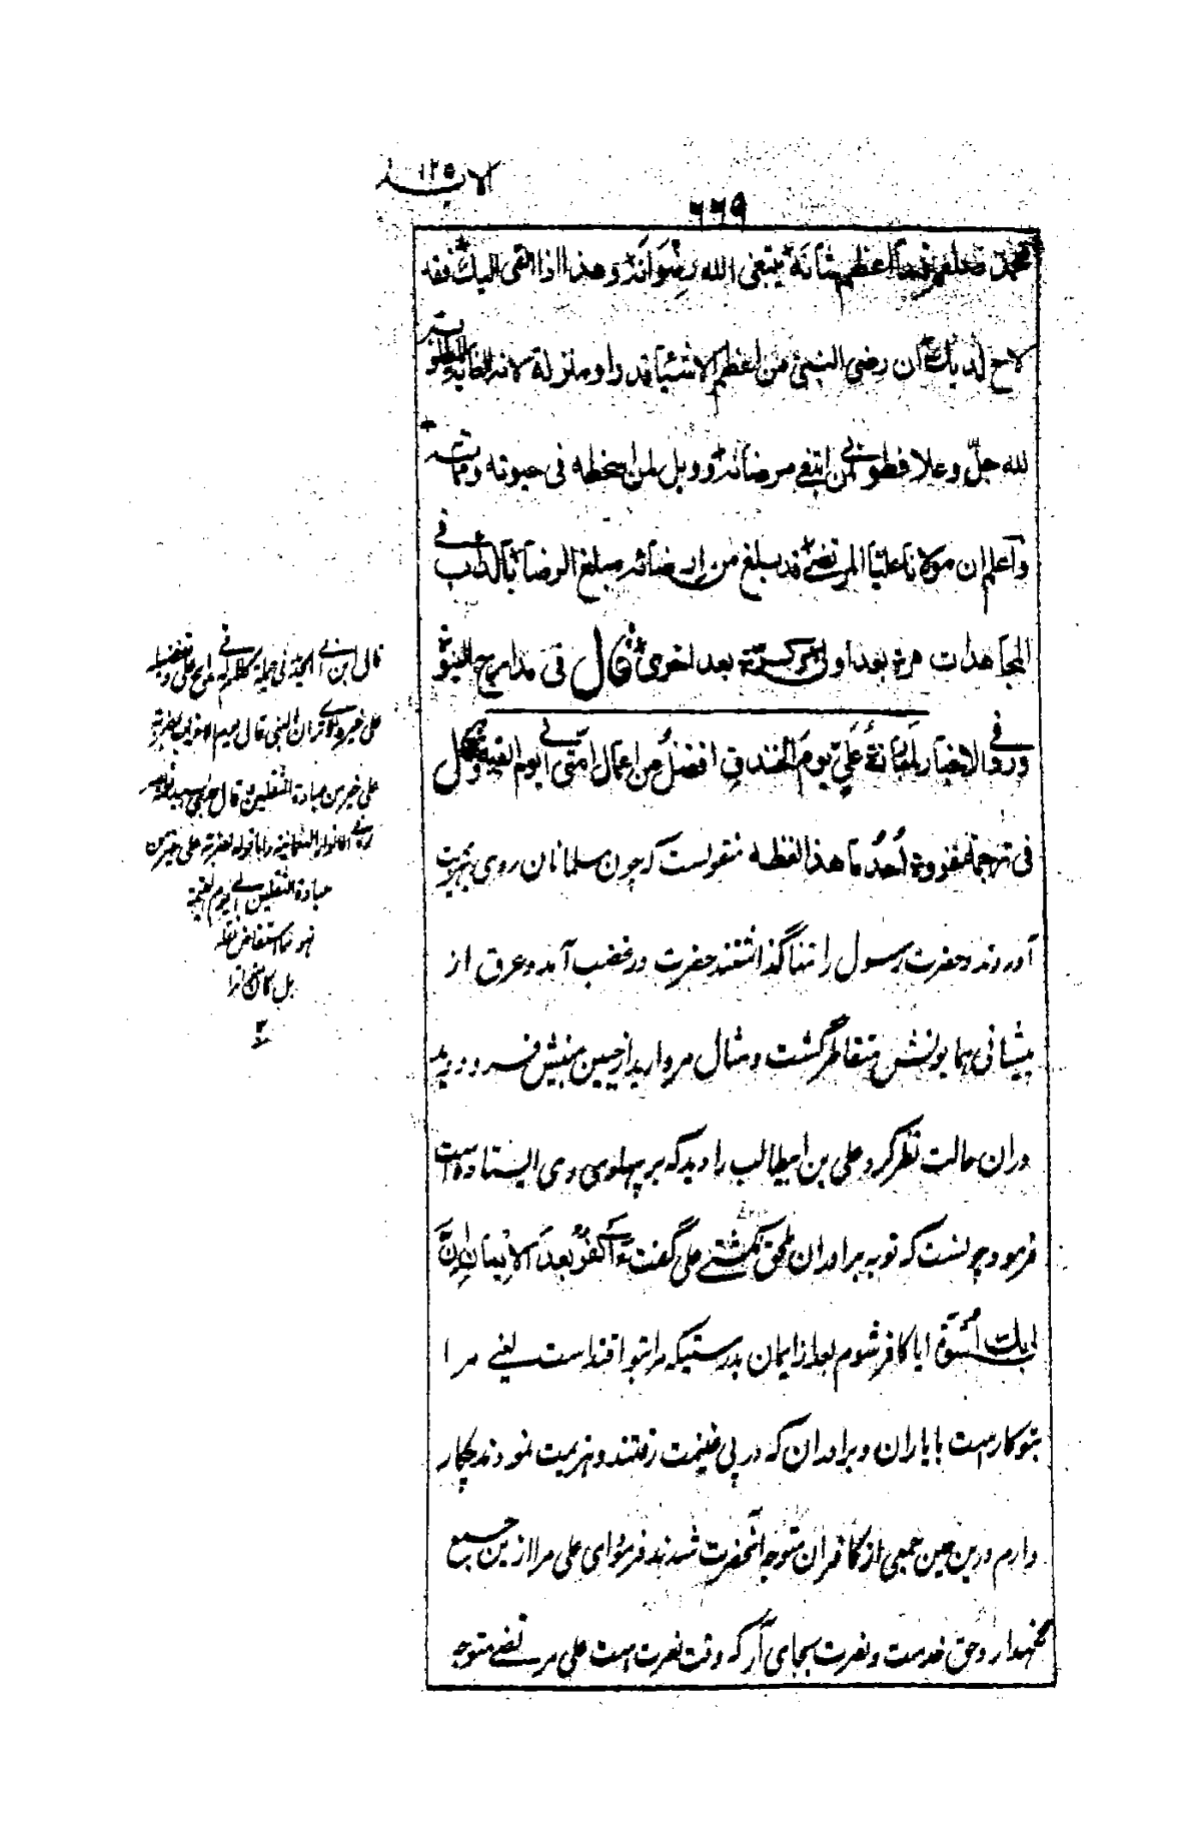 الآیة ۱۲۵
۶۶۹
محمد صلعم فما اعظم شانه یبتغی الله رضوانه و هذا اذا القی الیک فقد
لاح لدیک ان رضی النبی من اعظم الاشیاء قدرا و منزلة لانه الغایة المطلوبة
لله جلّ و علا فطوبی لمن ابتغی مرضاته و ویل لمن اسخطه فی حیوته و مماته
و اعلم ان مولانا علیا المرتضی قد بلغ من ارضائه مبلغ الرضا بالدأب فی
المجاهدات مرة بعد اولی و کرة بعد اخری قال فی مدارج النبوة
و ورد فی الاخبار لمبارزة علیّ یوم الخندق افضل من اعمال امتی الی یوم القیمة و قال
فی ترجمة غزوة اُحُد ما هذا لفظه منقولست که چون مسلمانان روی بهزیمت
آوردند و حضرت رسول را تنها گذاشتند حضرت در غضب آمد و عرق از
پیشانی همایونش متقاطر گشت و مثال مروارید از جبین مبینش فرو دوید
دران حالت نظر کرد علی بن ابیطالب را دید که بر پهلوی وی ایستاده است
فرمود چونست که تو به برادران ملحق نگشتے علی گفت ءاکفر بعد الایمان اِنَّ لی
بک اُسوَة ایا کافر شوم بعد از ایمان بدرستیکه مرا بتو اقتداست یعنے مرا
بتو کارست با یاران و برادران که در پی غنیمت رفتند و هزیمت نمودند چکار
دارم درین حین جمعی از کافران متوجه آنحضرت شدند فرمود ای علی مرا ازین جمع
نگهدار و حق خدمت و نصرت بجای آر که وقت نصرت است علی مرتضے متوجه
قال ابن ابی الحدید فی جملة کلام له
علی خیر
علی خیر من عبادة الثقلین و قال
فی الانوار النعمانیة و اما قوله لضربة علی خیر من
عبادة الثقلین الی یوم القیمة
فهو مما استفاض نقله
بل کاد